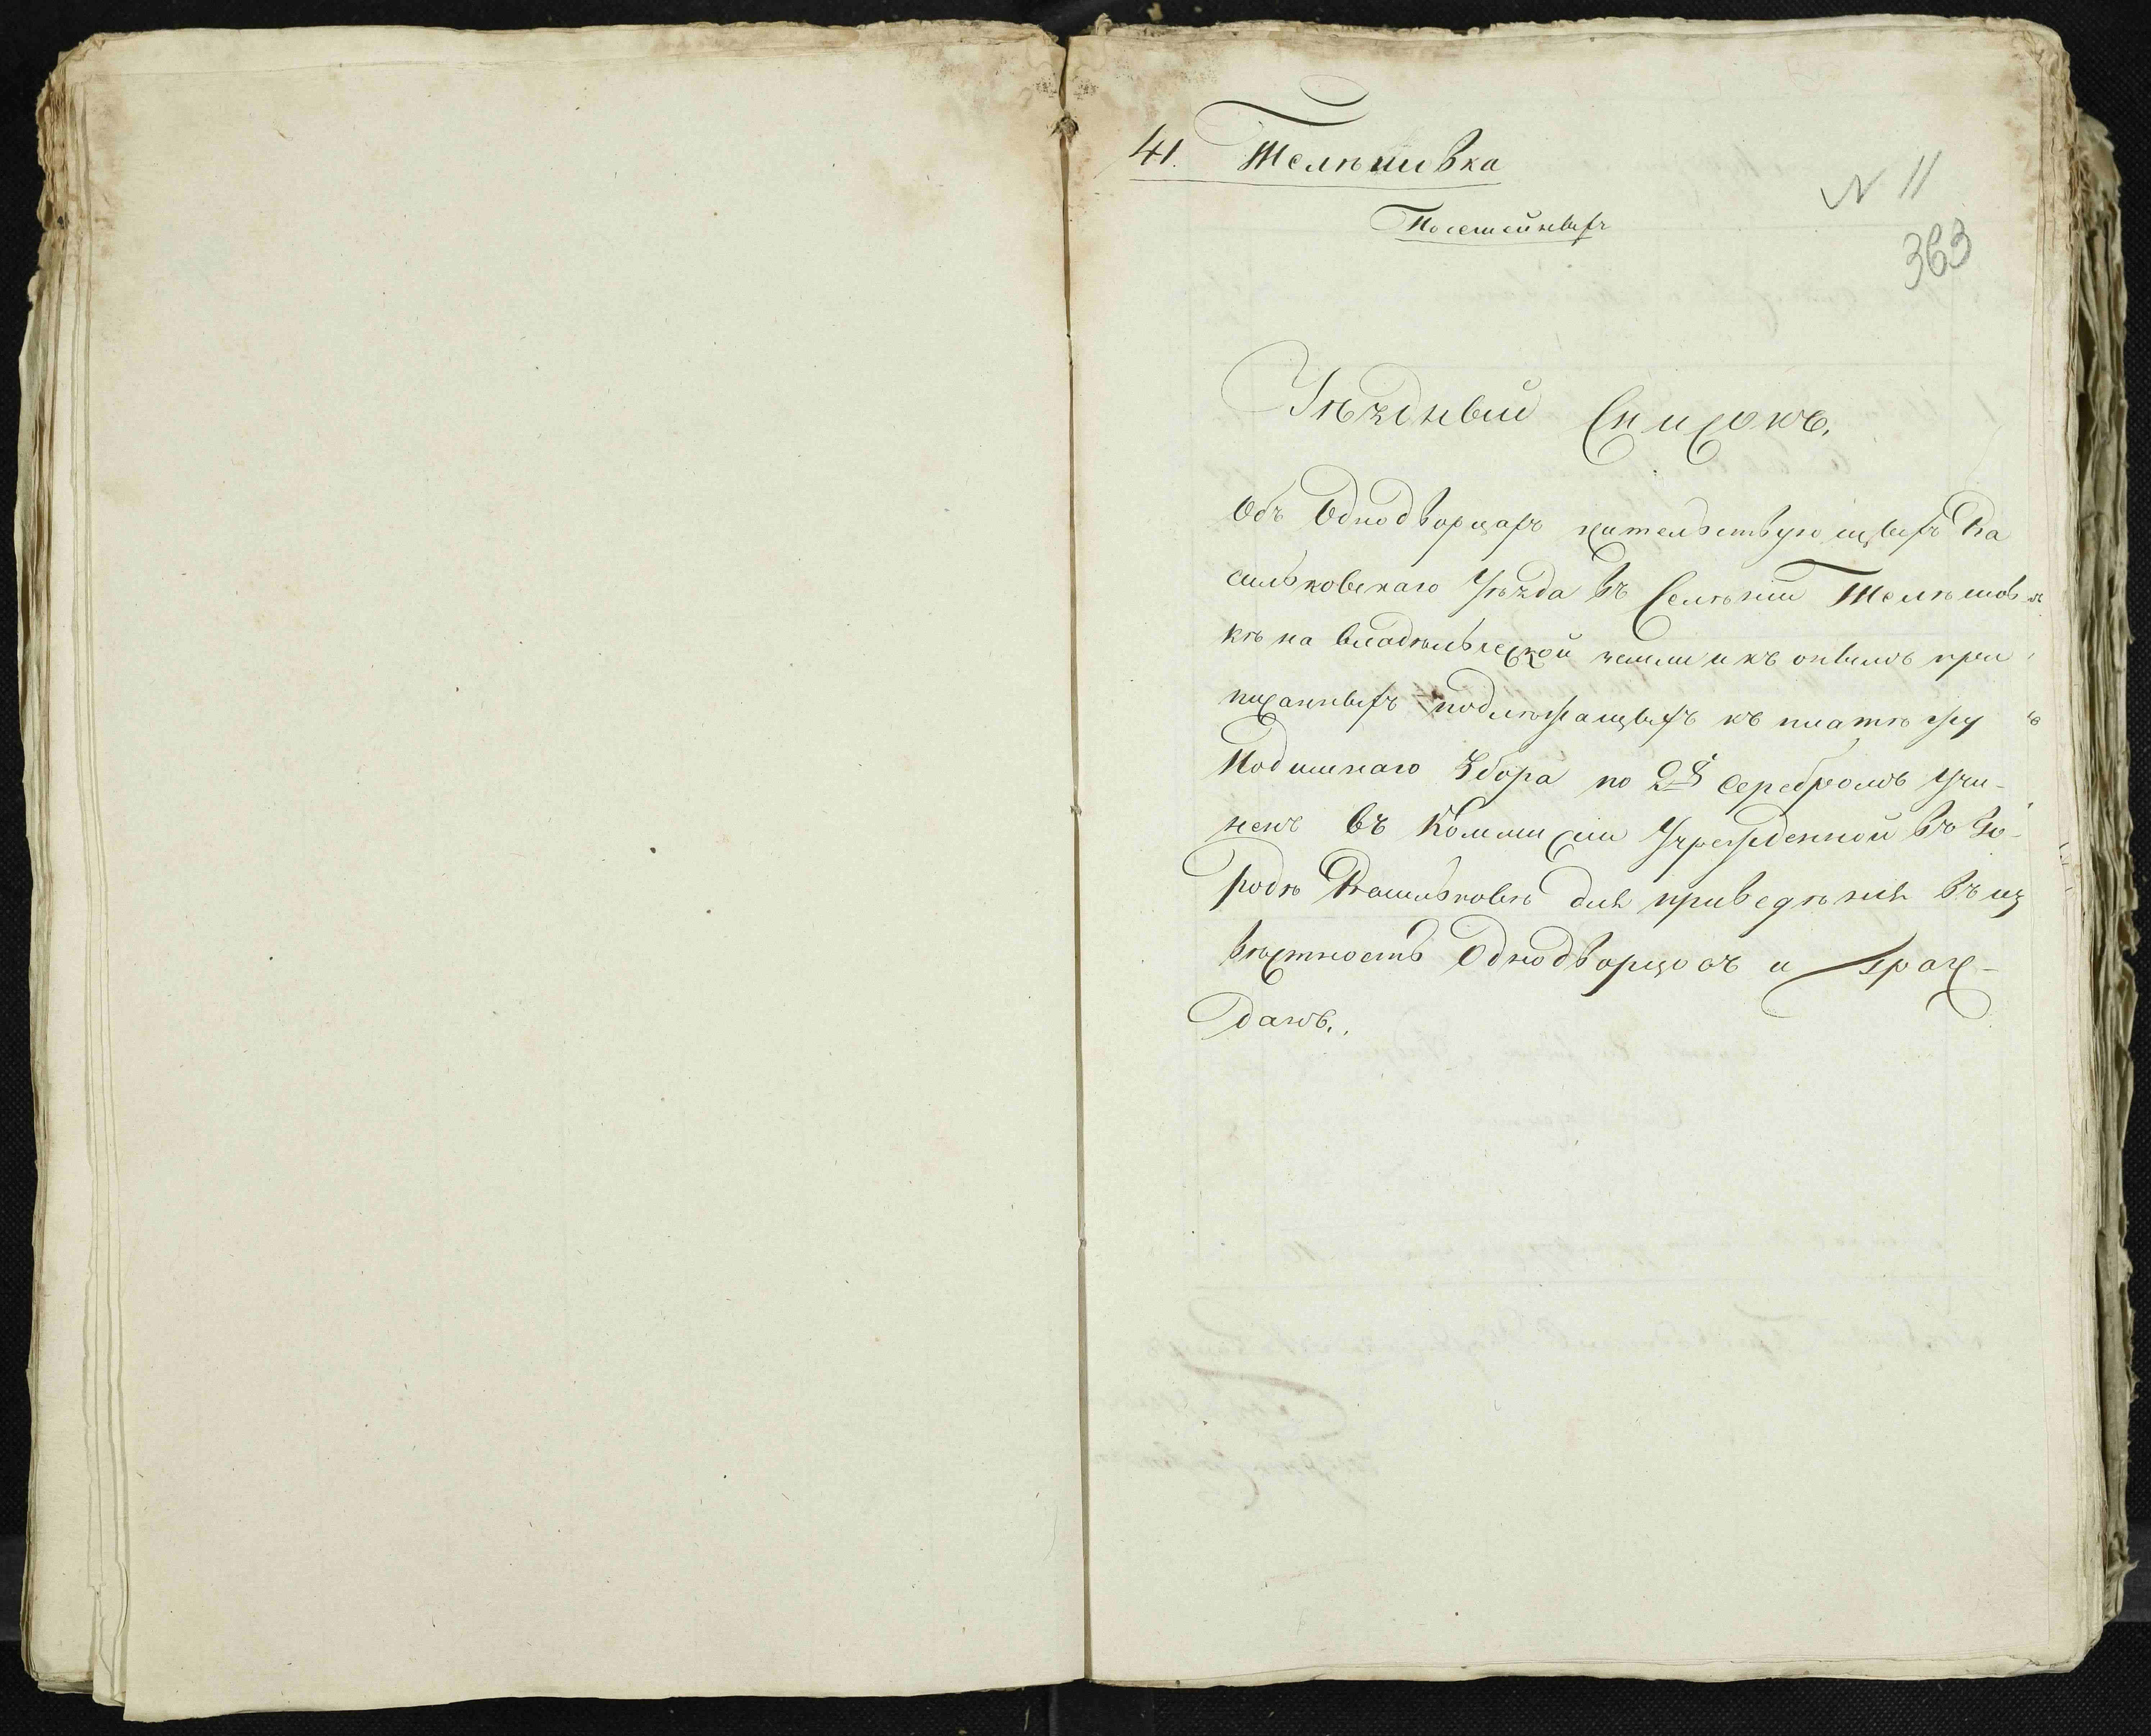 41. Телѣшовка
№ 11
Посемейныхъ
363
Уѣздный Списокъ.
Объ Однодворцахъ жительствующыхъ Ва
сильковскаго Уѣзда въ Селѣнии Телѣшов
кѣ на владѣльческой земли и къ онымъ при
писанныхъ подлѣжащыхъ къ платѣжу
Подымнаго Збора по 2 серебромъ Учи-
ненъ въ Коммисии Учрежденной въ Го-
родѣ Василковѣ для приведѣния въ из
вѣстность Однодворцовъ и Граж-
данъ.